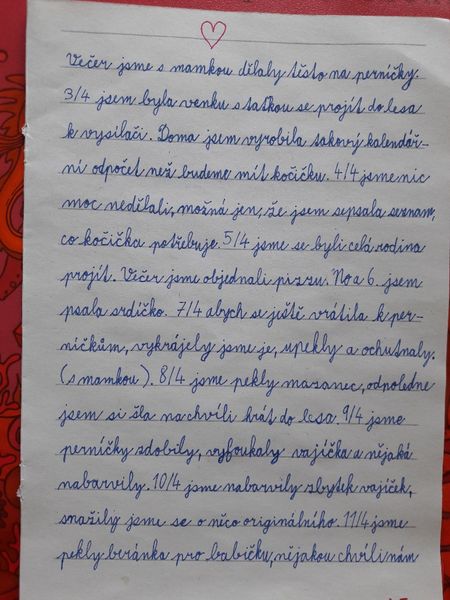 Večer jsme s mamkou dělaly těsto na perníčky.
3/4 jsem byla venku s taťkou se projít do lesa
k vysílači. Doma jsem vyrobila takový kalendář-
ní odpočet než budeme mít kočičku. 4/4 jsme nic
moc nedělali, možná jen, že jsem sepsala seznam,
co kočička potřebuje. 5/4 jsme se byli celá rodina
projít. Večer jsme objednali pizzu. No a 6. jsem
psala srdíčko. 7/4 abych se ještě vrátila k per-
níčkům, vykrájely jsme je, upekly a ochutnaly.
(s mamkou). 8/4 jsme pekly mazanec, odpoledne
jsem si šla na chvíli hrát do lesa. 9/4 jsme
perníčky zdobily, vyfoukaly vajíčka a nějaká
nabarvily. 10/4 jsme nabarvily zbytek vajíček,
snažily jsme se o něco originálního. 11/4 jsme
pekly beránka pro babičku, nějakou chvíli nám